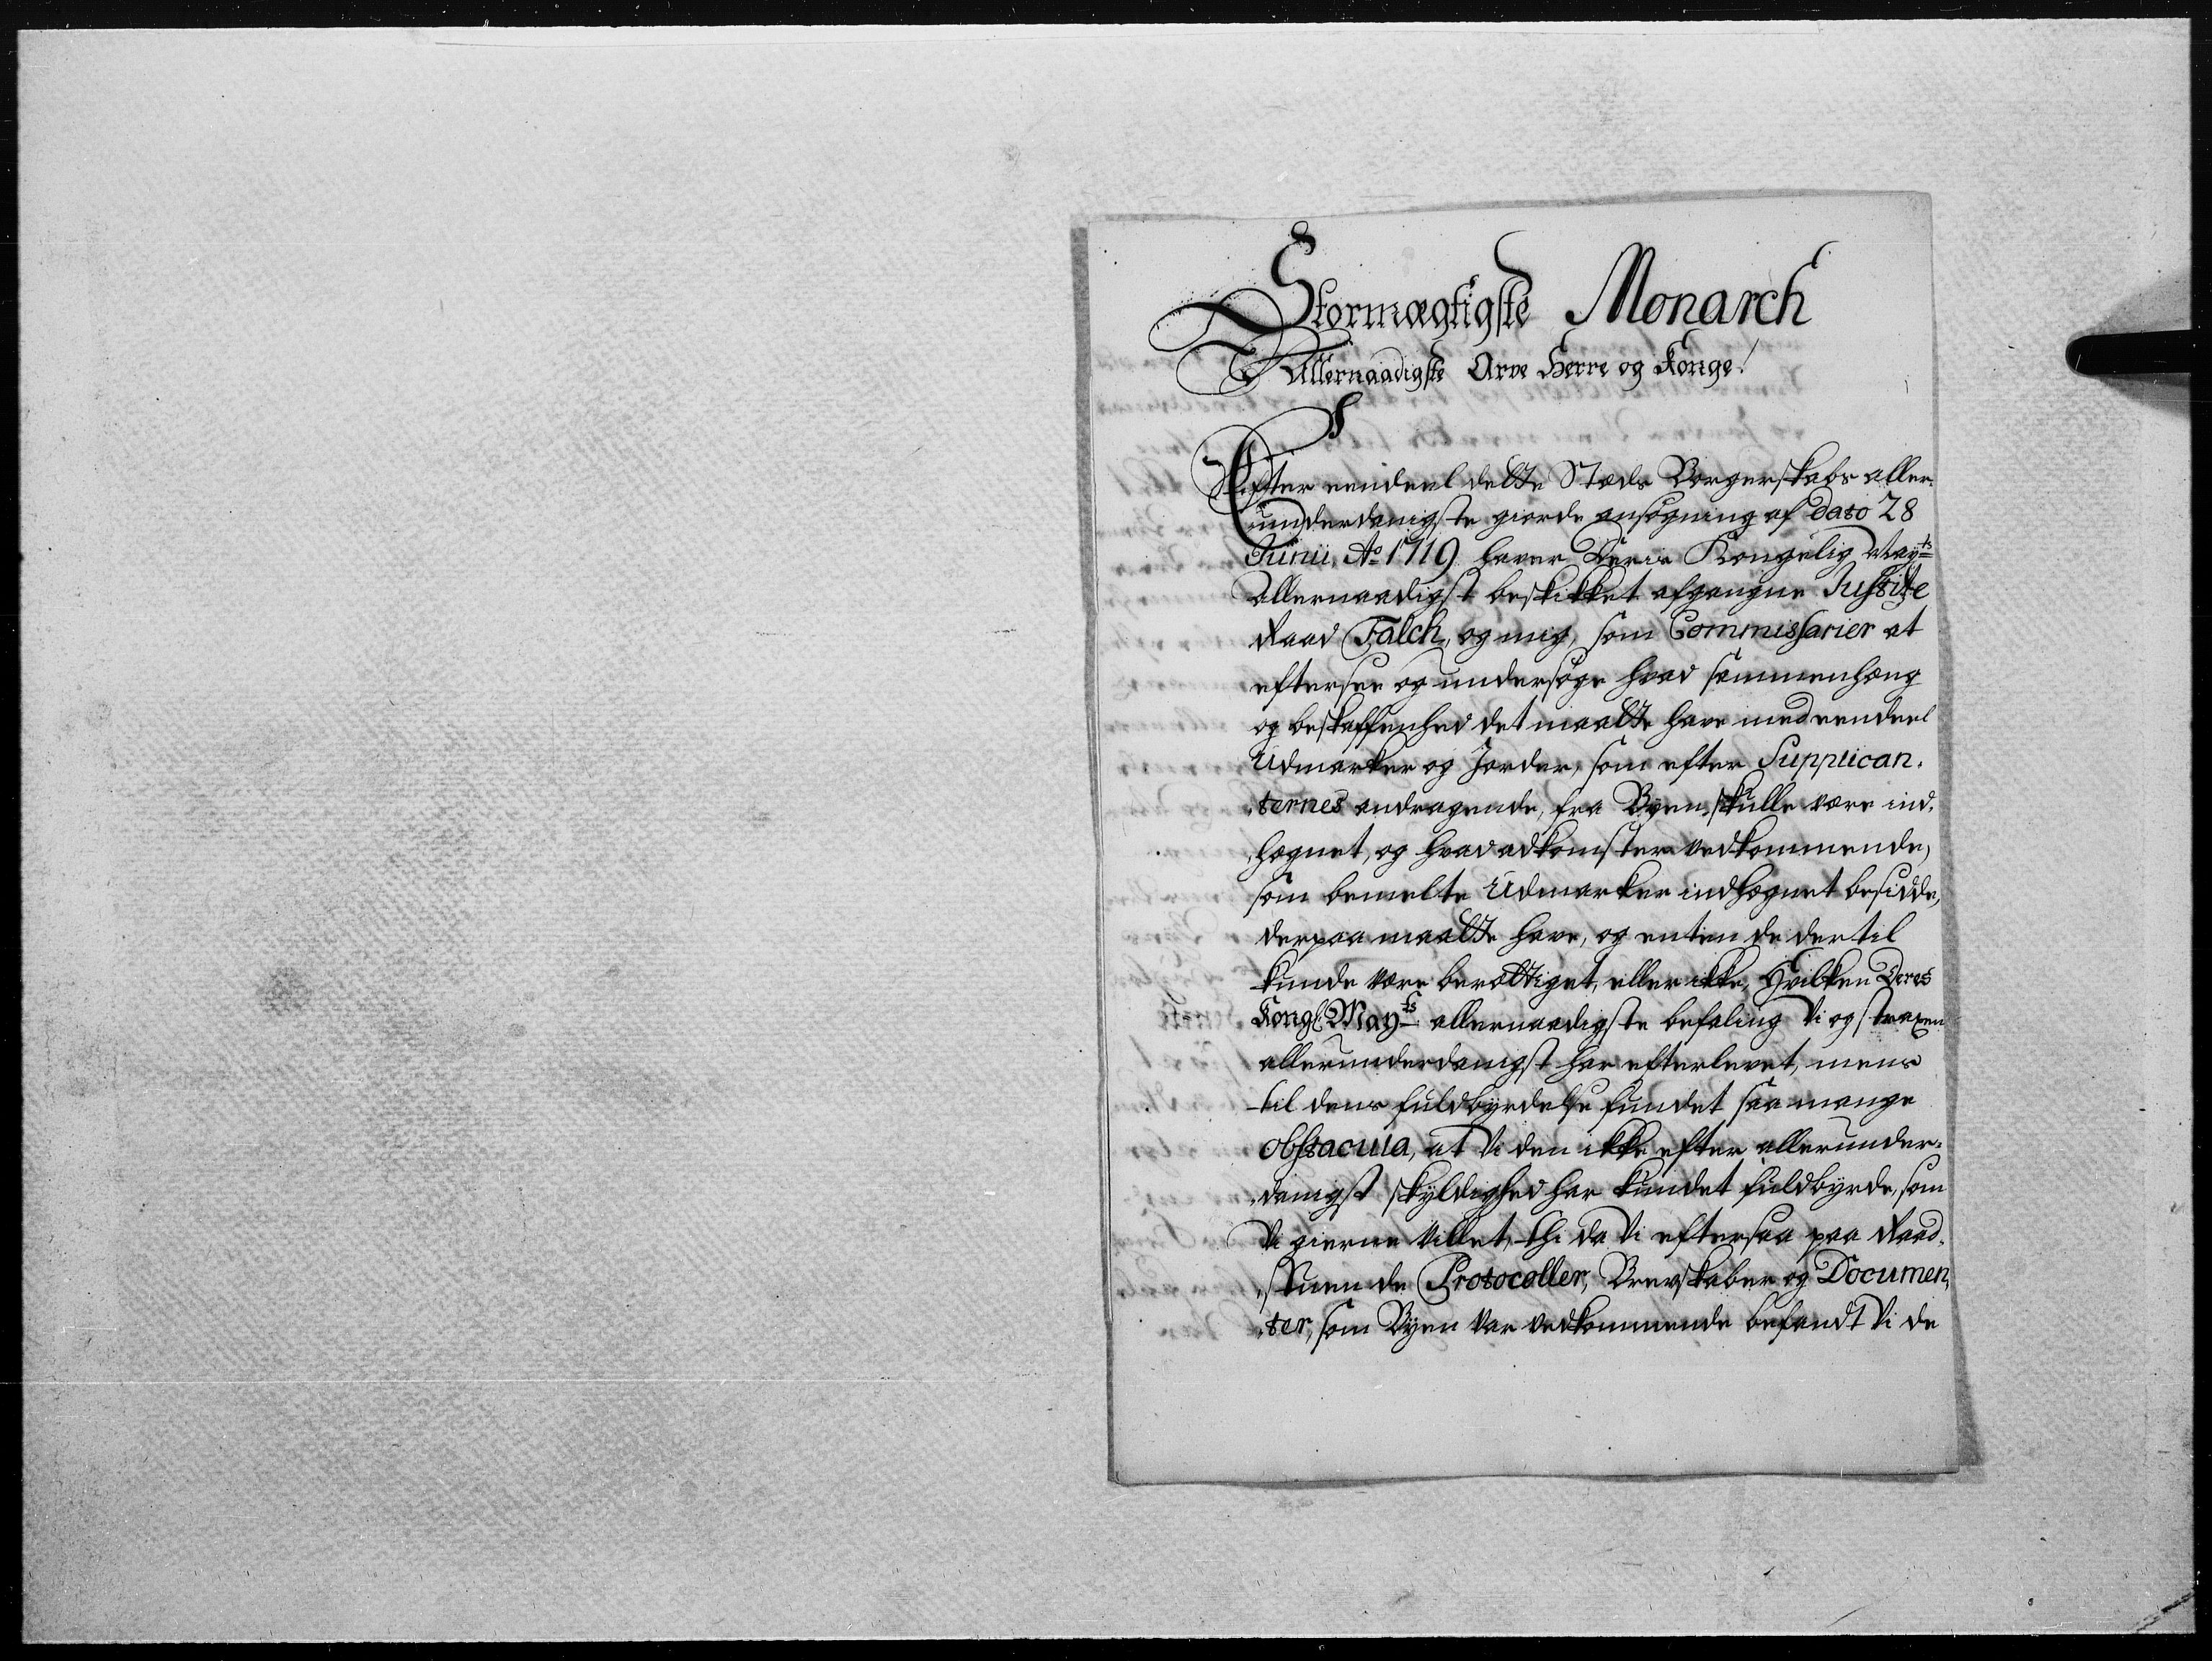 Stormægtigste Monarch
Allernaadigste Arve Herre og Konge!
Efter eendeel dette Stæds Borgerskabs aller-
underdanigste giorde ansøgning af dato 28
Junii, Ao 1719 haver Deris Kongelig Mayts
allernaadigst beskikket afgangne Justitz
Raad Falch, og mig, som Commissarier at
eftersee og undersøge hvad sammenhæng
og beskaffenhed det maatte have med eendeel
Udmarker og Jorder, som efter Supplican-
ternes andragende, fra Byen skulle være ind-
hægnet, og hvad adkomster vedkommende,
som bemelte Udmarker indhægnet besidde,
derpaa maatte have, og enten de dertil
kunde være berættiget, eller ikke, Hvilken Deres
Kongl: Mayts allernaadigste befaling Vi og straxen
allerunderdanigst har efterlevet, mens
til dens fuldbyrdelse fundet saa mange
obstacula, at Vi den ikke efter allerunder-
danigst skyldighed har kundet fuldbyrde, som
Vi gierne villet, thi da Vi eftersaa paa Raad-
stuen de Protocoller, Brevskaber og Documen-
ter, som Byen var vedkommende befandt Vi de